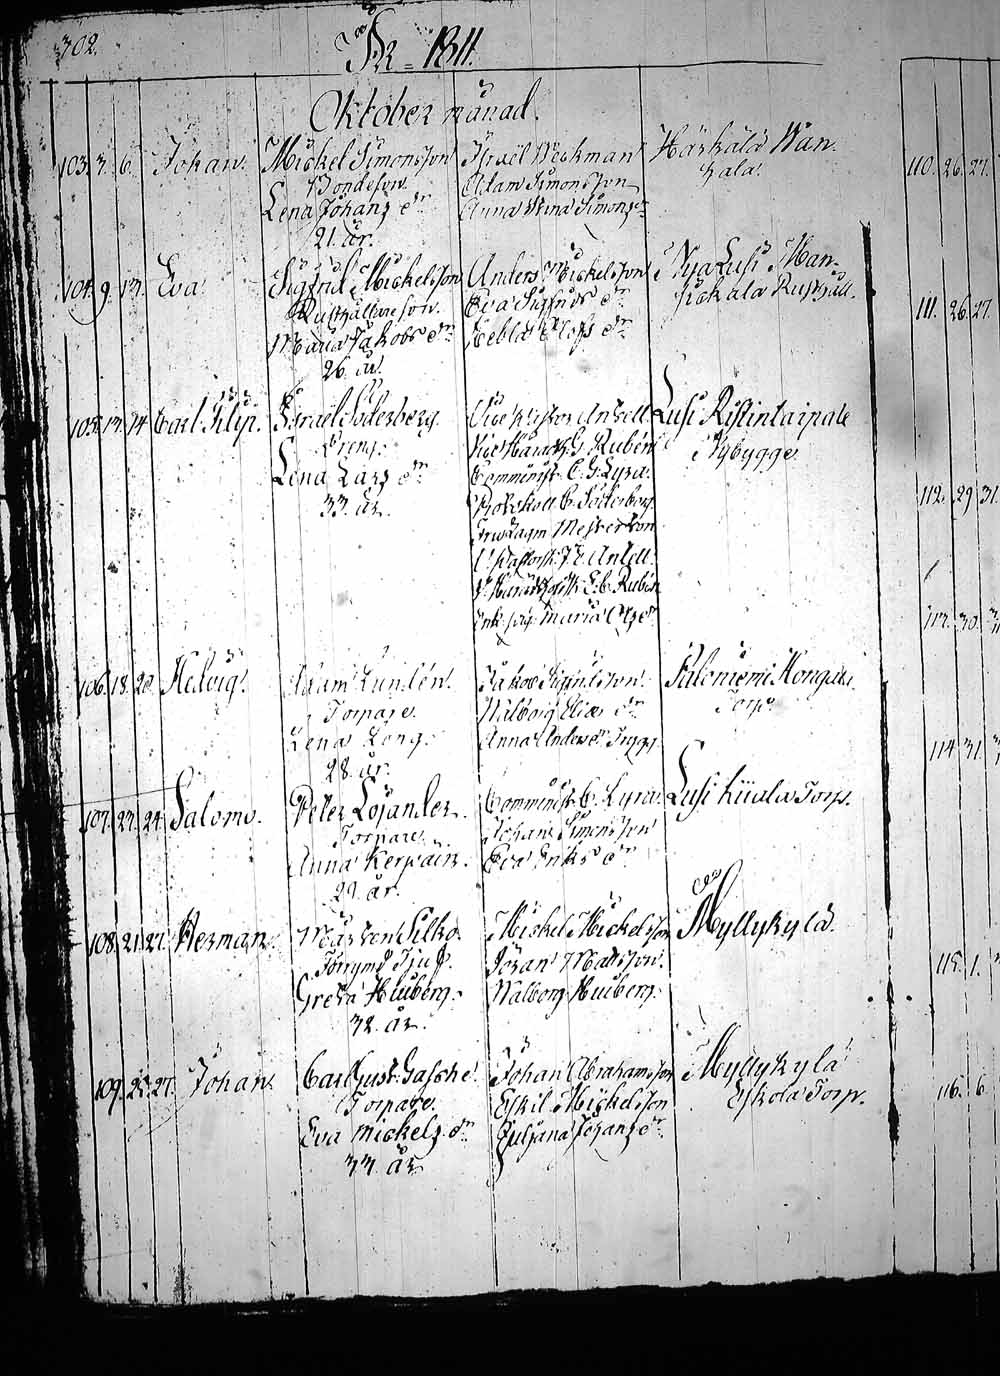 302.
År 1811.
Oktober månad.
103. 3. 6. Johan.
Mickel Simonsson
Bondeson.
Lena Johans dr
21. år.
Israël Weckman
Adam Simonsson
Anna Stina Simons dr
Härkälä Wan-
hala.
104. 9. 13. Eva
Sigfrid Mickelsson
Rusthållareson.
Maria Jakobs dr
26. år.
Anders Mickelsson
Eva Sigfrids dr
Hebla
Nya Lusi Man-
sikkala Rusthåll.
105. 13. 14. Carl
Israel Söderberg.
Dreng.
Lena Lars dr
33. år.
Antell
G. Rubén
Comminist. C. G. Lyra.
Söderberg
Antell.
E. C. Rubén
Maria
Lusi Ristintaipale
Nybygge.
106. 18. 20. Hedvig.
Adam Lundén.
Torpare.
Lena Long.
28. år.
Jakob Sigfridsson.
Walborg Elias dr
Anna Anders dr Trygg.
Paloniemi
Torp.
107. 23. 24. Salomo.
Peter Löjander.
Torpare.
Anna
29. år.
Comminist. C. Lyra.
Johan Simonsson
Eva Eriks dr
Lusi Torp.
108. 21. 27. Herman.
Mårten Silko.
Greta Huiberg.
32. år.
Mickel Mickelsson
Johan Matsson.
Walborg Huiberg.
Myllykylä.
109. 25. 27. Johan.
Carl Gust. Gasche.
Torpare.
Eva Mickels dr
33. år
Johan Abrahamsson
Eskil Mickelsson
Juliana Johans dr
Myllykylä
Eskola Torp.
110. 26. 27.
111. 26. 27.
112. 29. 31.
113. 30.
114. 31.
115. 1.
116. 6.